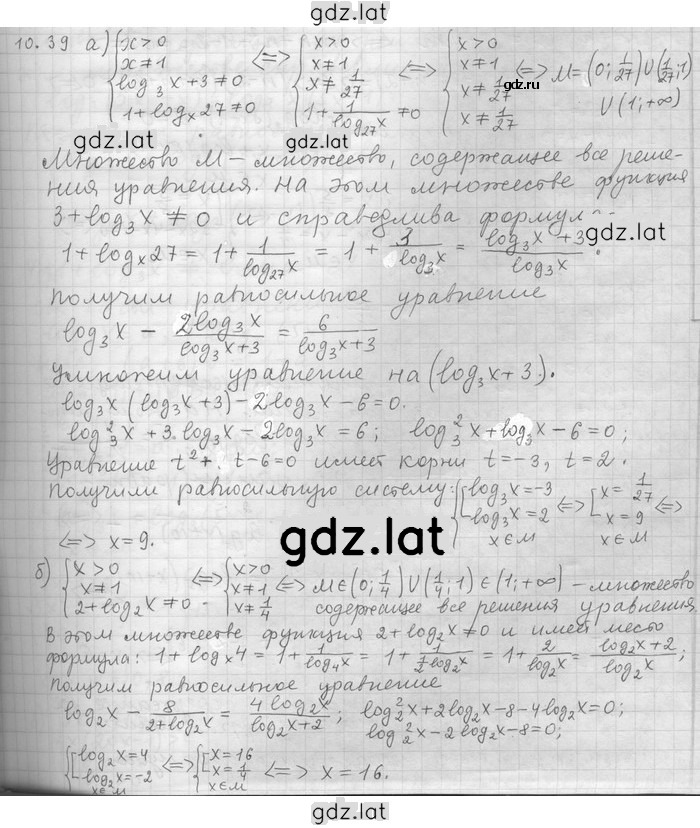 gdz.lat
10.39 а) {x>0 x≠1 log₃x+3≠0 1+logₓ27≠0 ⟺ {x>0 x≠1 x≠1/27 1+1/log₂₇x≠0 ⟺ {x>0 x≠1 x≠1/27 x≠1/27 ⟺ M=(0;1/27)∪(1/27;1)∪(1;+∞)
gdz.lat
gdz.lat
Множество M – множество, содержащее все реше-
ния уравнения. На этом множестве функция
3+log₃x≠0 и справедлива формул
gdz.lat
1+logₓ27=1+1/log₂₇x=1+3/log₃x=(log₃x+3)/log₃x.
Получим равносильное уравнение
log₃x − 2log₃x/(log₃x+3) = 6/(log₃x+3)
Умножим уравнение на (log₃x+3).
log₃x(log₃x+3)−2log₃x−6=0.
log₃²x+3·log₃x−2log₃x=6; log₃²x+log₃x−6=0;
Уравнение t²+t−6=0 имеет корни t=−3, t=2.
Получили равносильную систему: {[log₃x=−3 log₃x=2 x∈M ⟺ {[x=1/27 x=9 x∈M ⟺
⟺ x=9.
gdz.lat
б) {x>0 x≠1 2+log₂x≠0 ⟺ {x>0 x≠1 x≠1/4 ⟺ M∈(0;1/4)∪(1/4;1)∈(1;+∞) – множество
содержащее все решения уравнения,
В этом множестве функция 2+log₂x≠0 и имеет место
формула: 1+logₓ4=1+1/log₄x=1+1/(½log₂x)=1+2/log₂x=(log₂x+2)/log₂x;
Получим равносильное уравнение
log₂x − 8/(2+log₂x) = 4log₂x/(log₂x+2); log₂²x+2log₂x−8−4log₂x=0;
log₂²x−2log₂x−8=0;
{[log₂x=4 log₂x=−2 x∈M ⟺ {[x=16 x=1/4 x∈M ⟺ x=16.
gdz.lat